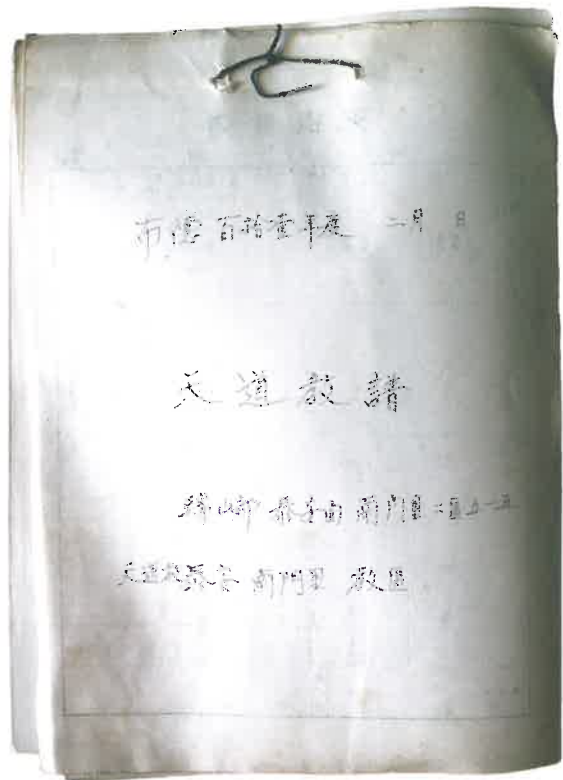 布德 百拾壹年度 二月 日
天道教譜
南門里 二区 五一五
天道教 南門里 教區